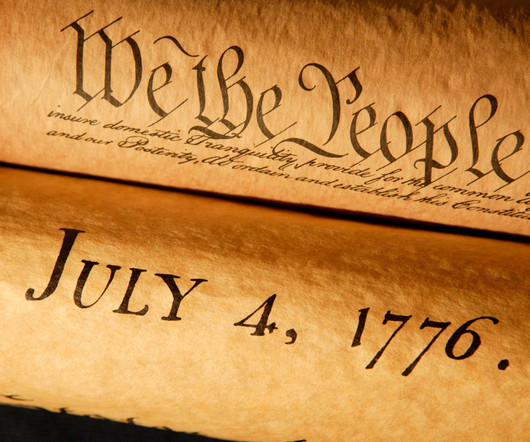 We the People
insure domestic Tranquility, provide for the common
and our Posterity, do ordain and establish this
JULY 4, 1776.